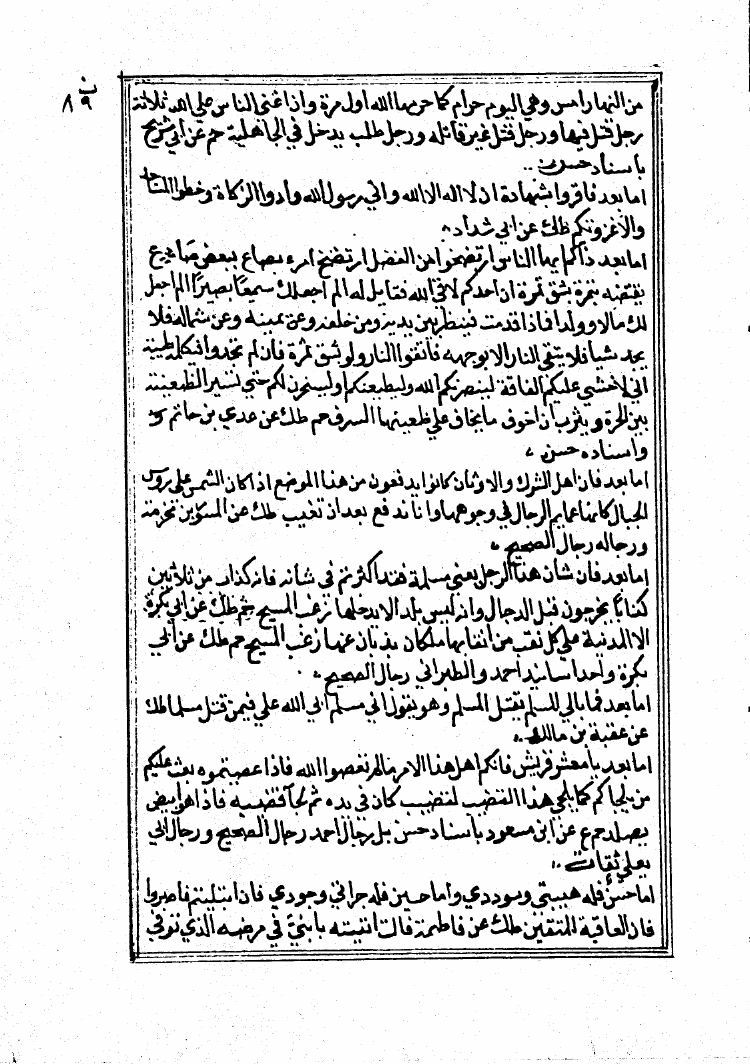 ب
٨٩
من النهار امس وهي اليوم حرام كما حرمها الله اول مرة وان اعتى الناس على الله ثلاثة
رجل قتل فيها ورجل قتل غير قاتله ورجل طلب بدخل في الجاهلية حم عن ابي شريح
باسناد حسن
اما بعد فاقروا بشهادة ان لا اله الا الله واني رسول الله وادوا الزكاة وخطوا المساجد
والا غزوتكم طك عن ابي شداد
اما بعد ذاكم ايها الناس ارتضخوا من الفضل ارتضخ امرء بصاع ببعض صاع
بقبضة بتمرة بشق تمرة ان احدكم لاقي الله فقايل له الم اجعلك سميعا بصيرا الم اجعل
لك مالا وولدا فماذا قدمت فينظر بين يديه ومن خلفه وعن يمينه وعن شماله فلا
يجد شيا فلا يتقي النار الا بوجهه فاتقوا النار ولو بشق تمرة فان لم تجدوا فبكلمة طيبة
اني لا خشي عليكم الفاقة لينصرنكم الله وليعطينكم او ليفتحن لكم حتى تسير الظعينة
بين الحيرة ويثرب ان اخوف ما يخاف على ظعينتها السرق حم طك عن عدي بن حاتم
واسناده حسن
اما بعد فان اهل الشرك والاوثان كانوا يدفعون من هذا الموضع اذا كان الشمس على روس
الجبال كانها عمايم الرجال في وجوهها وانا ندفع بعد ان تغيب طك عن المسور بن مخرمة
ورجاله رجال الصحيح
اما بعد فان شان هذا الرجل يعني مسيلمة فقد اكثرتم في شانه فانه كذاب من ثلاثين
كذابا يخرجون قبل الدجال وانه ليس بلد الا يدخلها رعب المسيح حم طك عن ابي بكرة
الا المدينة على كل نقب من انقابها ملكان يذبان عنها رعب المسيح حم طك عن ابي
بكرة واحد اسانيد احمد والطبراني رجال الصحيح
اما بعد فما بال المسلم يقتل المسلم وهو يقول اني مسلم ابى الله علي فيمن قتل مسلما طك
عن عقبة بن مالك
اما بعد يا معشر قريش فانكم اهل هذا الامر ما لم تعصوا الله فاذا عصيتموه بعث عليكم
من يلحاكم كما يلحى هذا القضيب لقضيب كان في يده ثم لحا قضيبه فاذا هو ابيض
يصلد حم ع عن ابن مسعود باسناد حسن بل رجال احمد رجال الصحيح ورجال ابي
يعلى ثقات
اما حسن فله هيبتي وسوددي واما حسين فله جراتي وجودي فان ابتليتم فاصبروا
فان العاقبة للمتقين طك عن فاطمة قالت اتيته بابني في مرضه الذي توفي